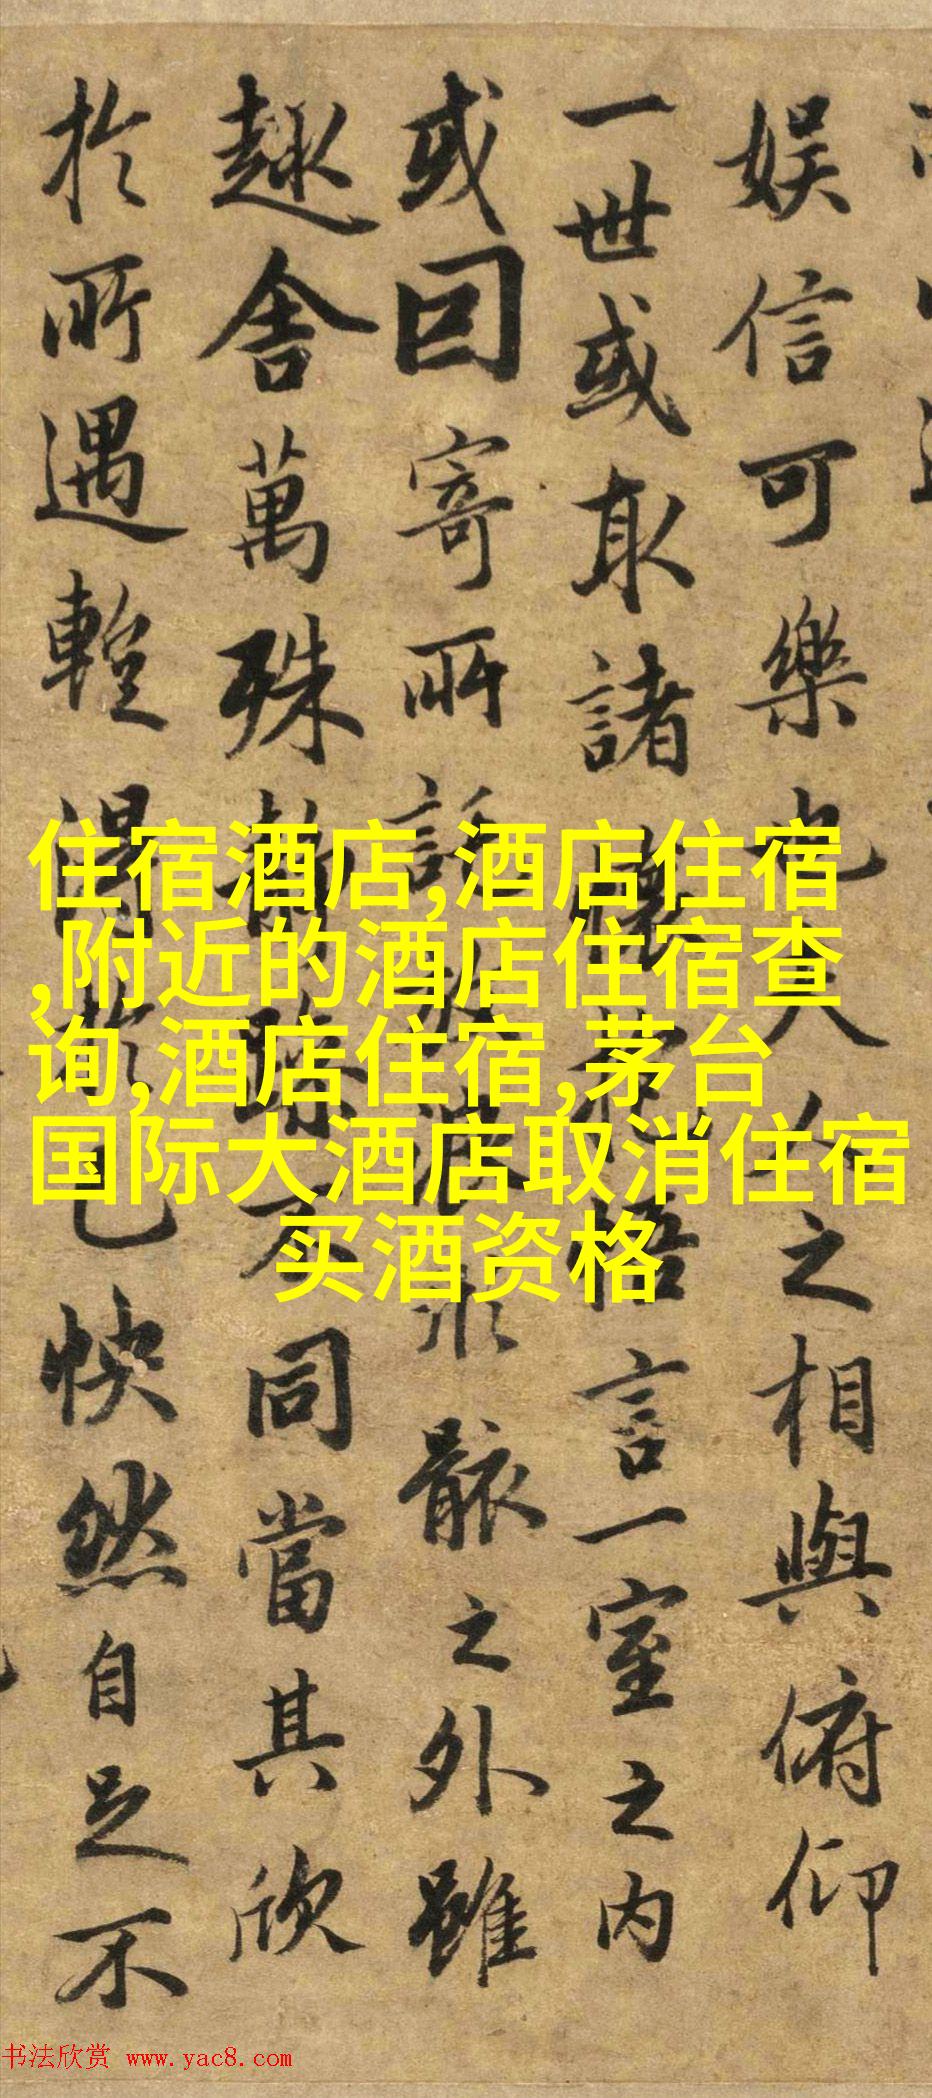 娱信可樂也夫人之相與俯仰
一世或取諸懷抱悟言一室之内
或因寄所託放浪形骸之外雖
趣舍萬殊靜躁不同當其欣
於所遇蹔得於己怏然自足不
住宿酒店,酒店住宿
,附近的酒店住宿查
询,酒店住宿,茅台
国际大酒店取消住宿
买酒资格
书法欣赏 www.yac8.com